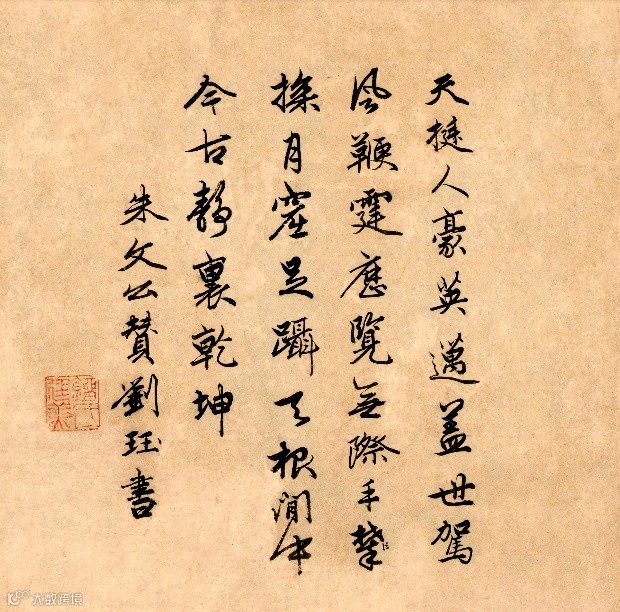 天挺人豪英邁蓋世駕
風鞭霆歷覽無際手
探月窟足躡天根閒中
今古靜裏乾坤
朱文公贊劉珏書
劉氏廷美
大数跨境